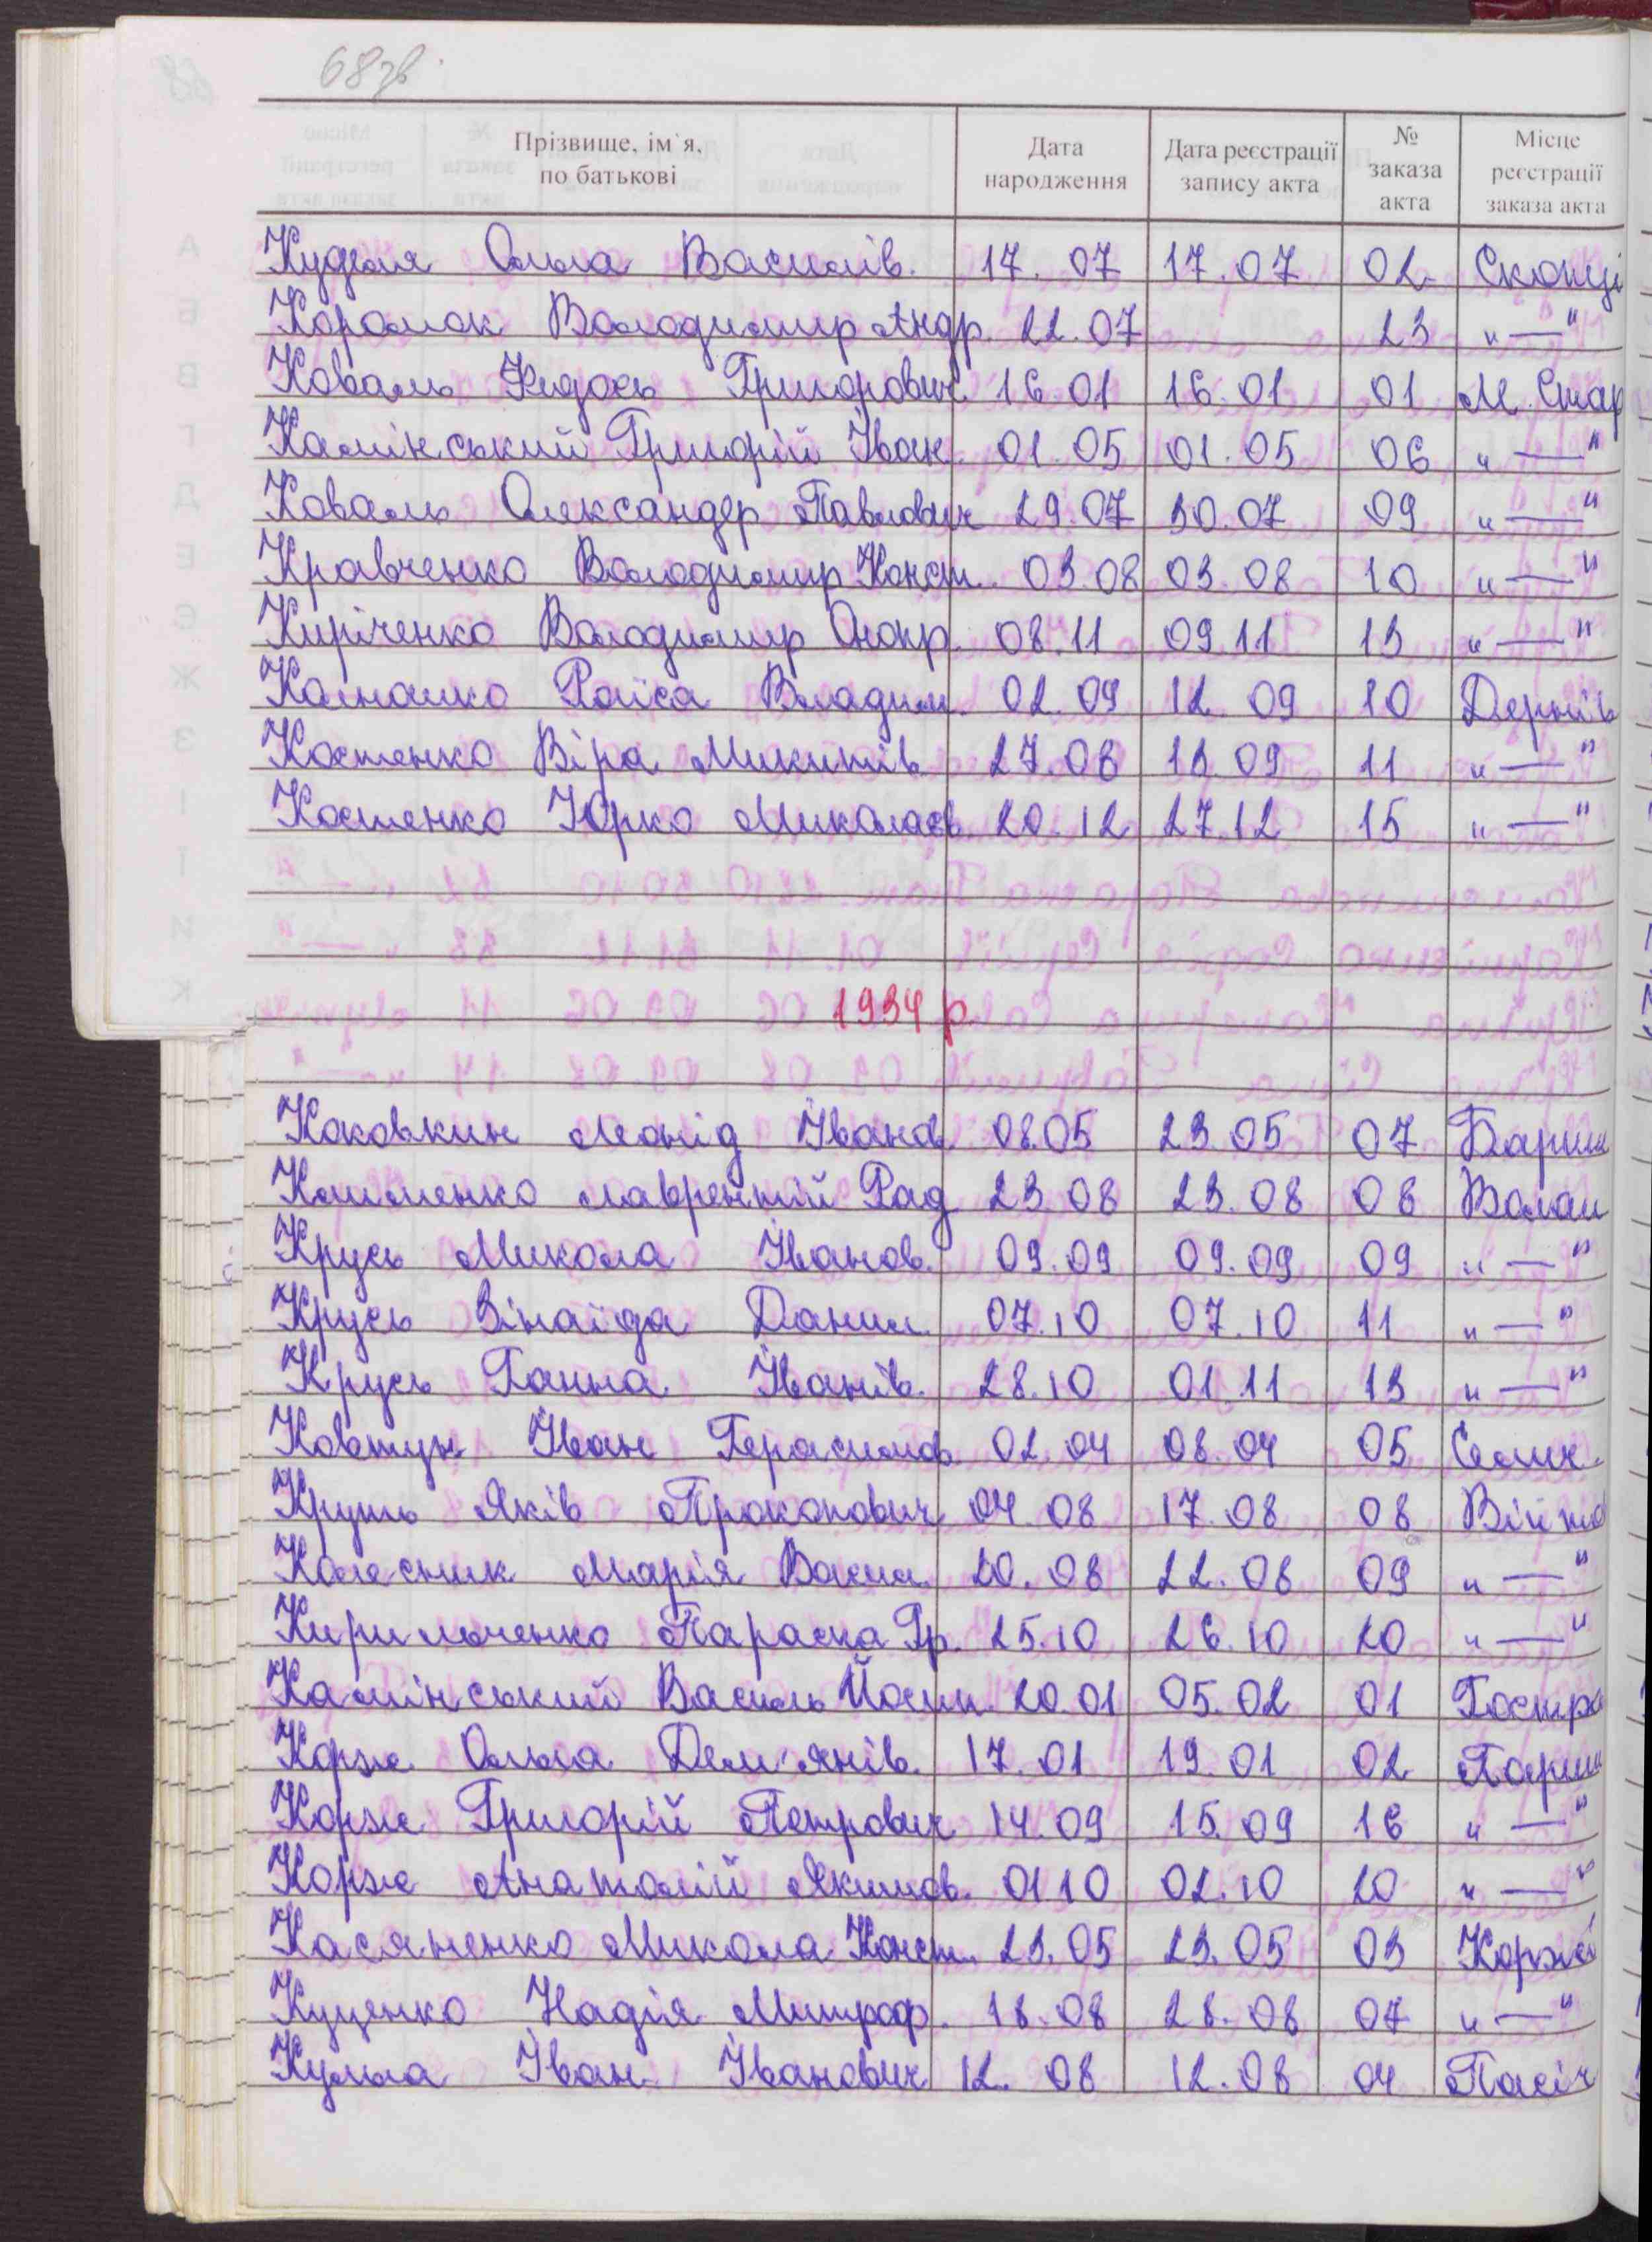 68 зв.
Прізвище, ім`я, по батькові Дата народження Дата реєстрації запису акта № заказа акта Місце реєстрації заказа акта
Куделя Ольга Василів. 17.07 17.07 02 Скопці
Коромок Володимир Андр. 22.07 23 „—“
Коваль Федось Григорович 16.01 16.01 01 М. Стар
Камінський Григорій Іван. 01.05 01.05 06 „—“
Коваль Олександер Павлович 29.07 30.07 09 „—“
Кравченко Володимир Конст. 03.08 03.08 10 „—“
Киріченко Володимир Онопр. 08.11 09.11 13 „—“
Калашко Раїса Владим. 02.09 12.09 10 Дернів
Костенко Віра Микитів 27.08 13.09 11 „—“
Костенко Юрко Миколаєв. 20.12 27.12 15 „—“
1934 р
Коковкин Леонід Іванов 08.05 23.05 07 Бариш
Клименко Лаврентій Рад 23.08 23.08 08 Волош
Крусь Микола Іванов. 09.09 09.09 09 „—“
Крусь Зінаїда Данил. 07.10 07.10 11 „—“
Крусь Ганна Іванів. 28.10 01.11 13 „—“
Ковтун Іван Герасимов. 02.04 08.04 05 Селич
Круть Яків Прокопович 04.08 17.08 08 Війтов
Колесник Марія Васил. 20.08 22.08 09 „—“
Кирильченко Параска Гр. 25.10 26.10 20 „—“
Камінський Василь Йосип. 20.01 05.02 01 Гостро
Корж Ольга Дем'янів. 17.01 19.01 02 Париш
Корж Григорій Петрович 14.09 15.09 16 „—“
Корж Анатолій Якимов. 01.10 02.10 20 „—“
Касяненко Микола Конст. 23.05 23.05 03 Коржі
Куценко Надія Митроф. 18.08 28.08 07 „—“
Кульга Іван Іванович 12.08 12.08 04 Пасіч